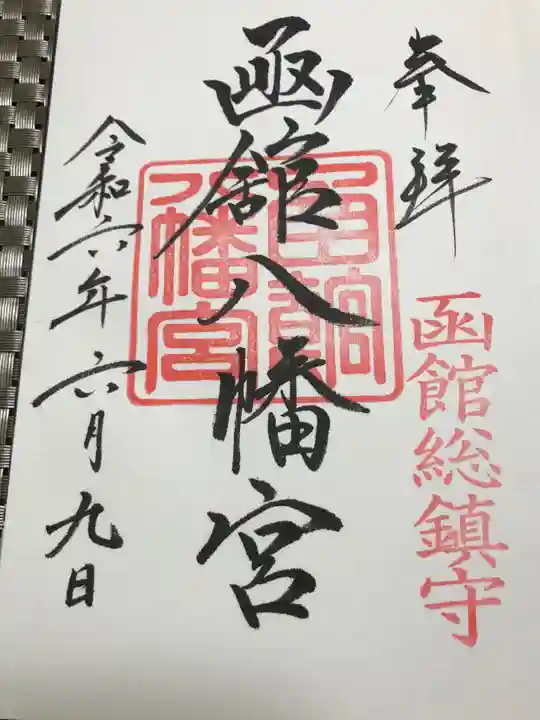 奉拝
函館総鎮守
函館八幡宮
函館
八幡宮
令和六年六月九日